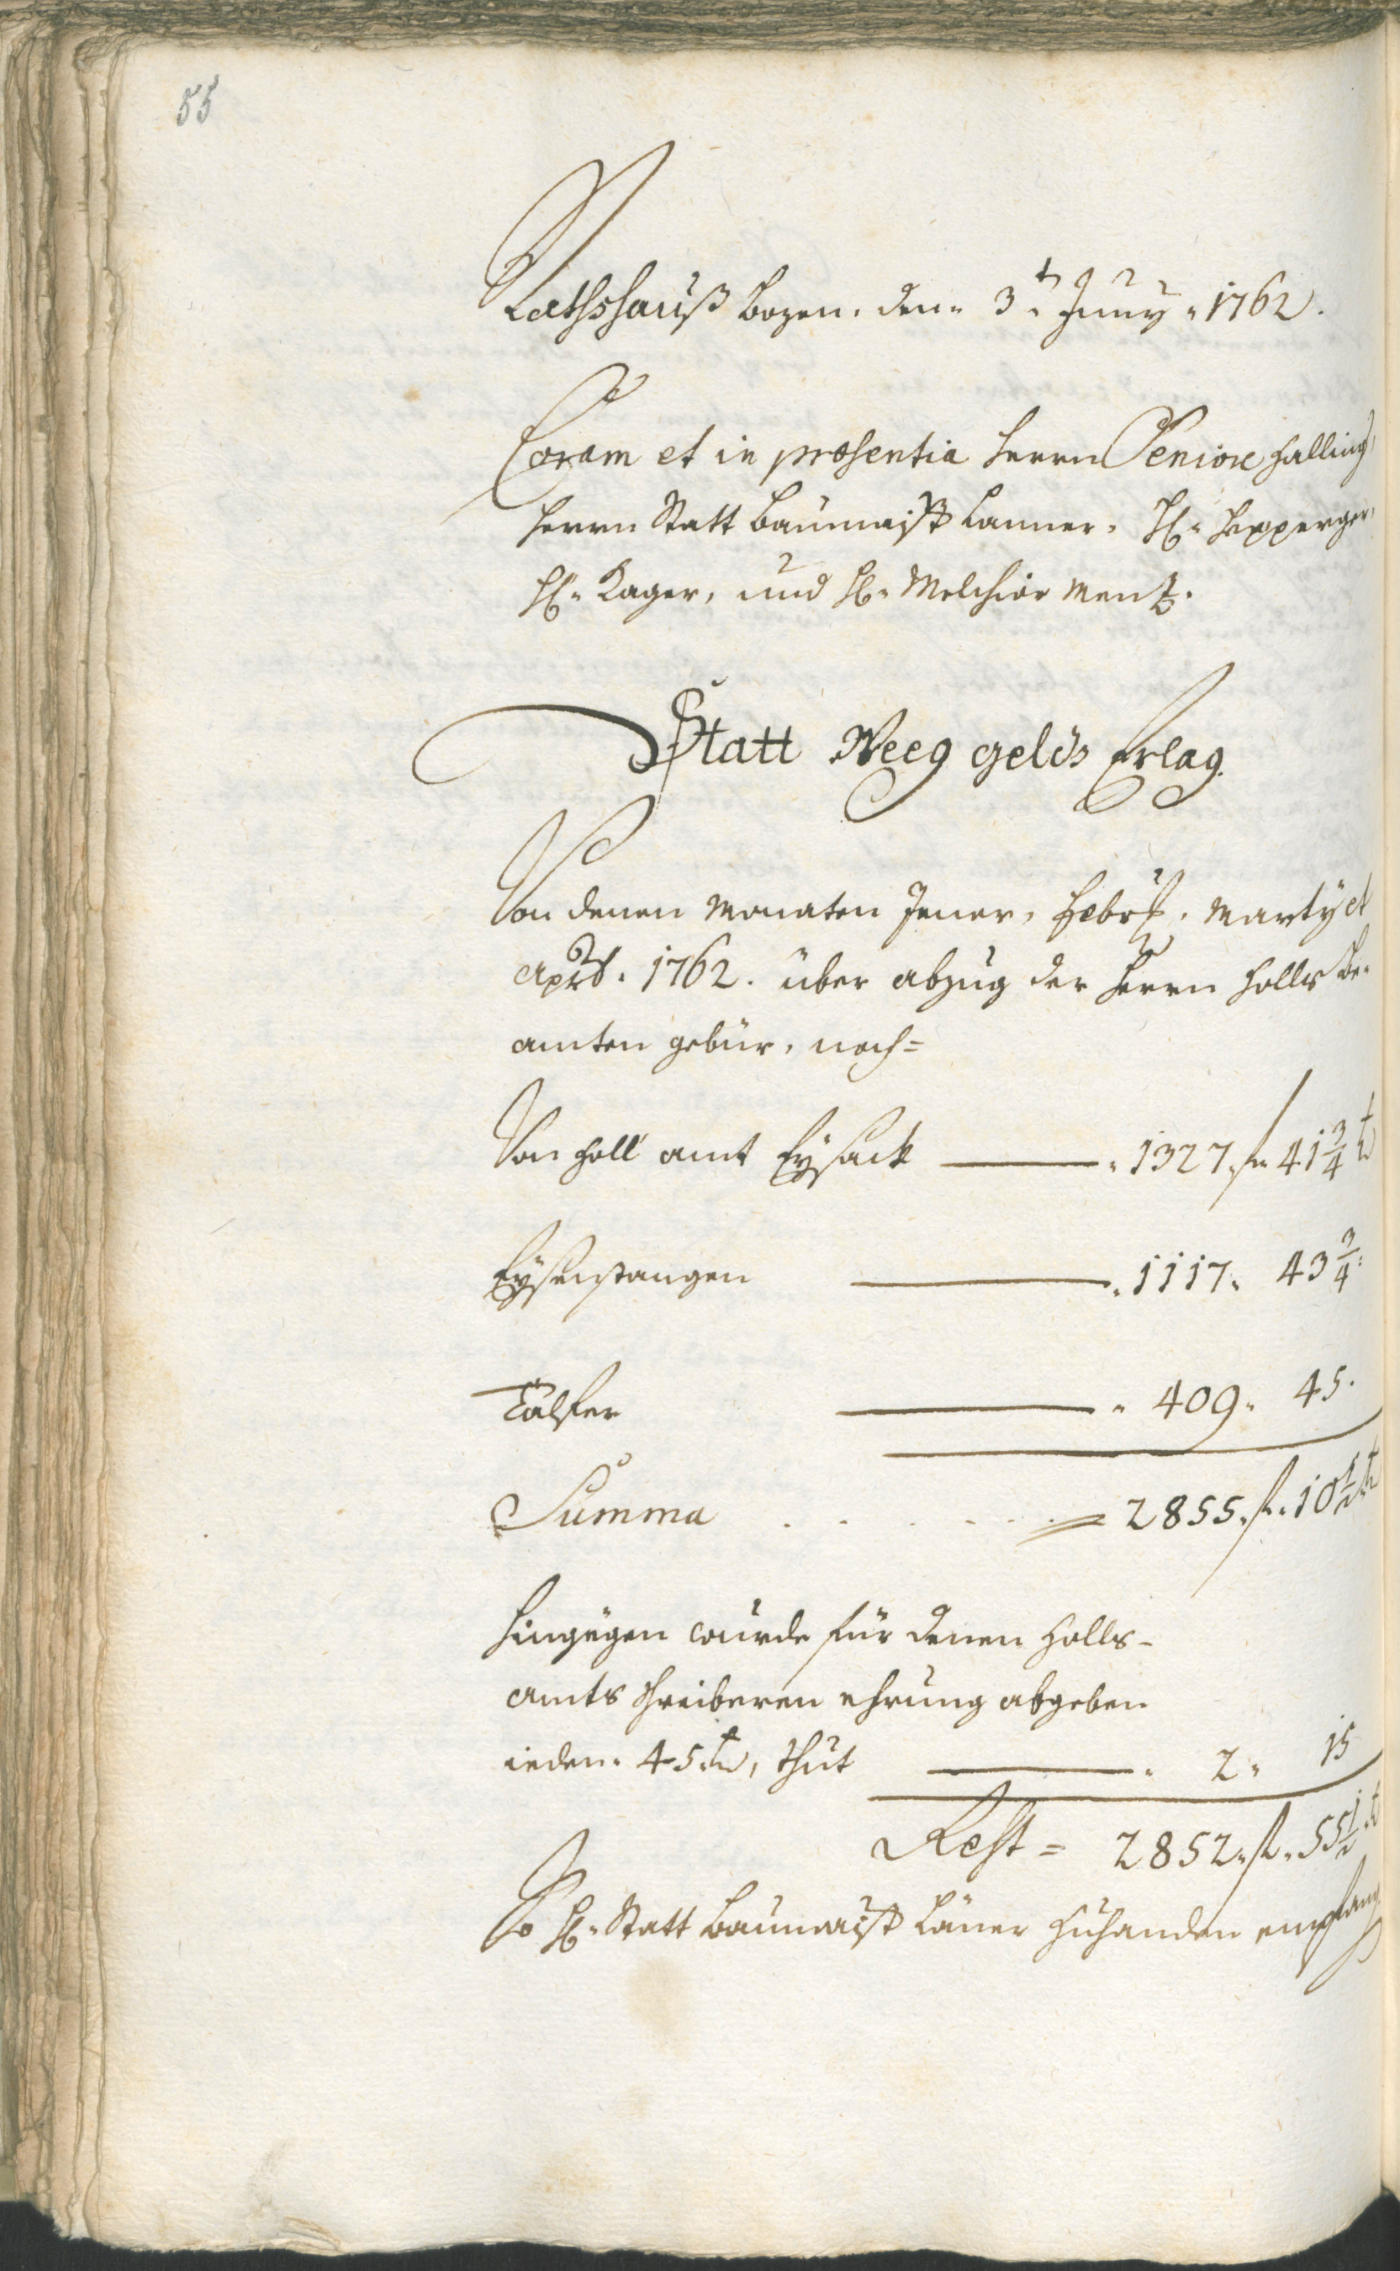 55
Rathshauß Bozen. den 3.t Juny 1762.
Coram et in præsentia Herrn Seniore Zalling,
Herrn Statt Baumaister Lanner, H: Hepperger,
H: Kager, und H: Melchior Menz.
Statt Weeg gelds Erlag.
Von denen Monaten Jener, Febr:, Marty et
April: 1762. über abzug der Herrn Zolls be-
amten gebür, noch=
Von Zoll amt Eysack 1327. f 41 3/4 x
Eysenstangen 1117. 43 3/4
Talfer 409. 45.
Summa 2855. f. 10 1/2 x
Hingegen wurde für denen Zolls-
amts schreiberen ehrung abgeben
ieden 45 x, thut 2. 15
Rest = 2852. f. 55 1/2 x
So H: Statt Baumaister Laner zuhanden empfang